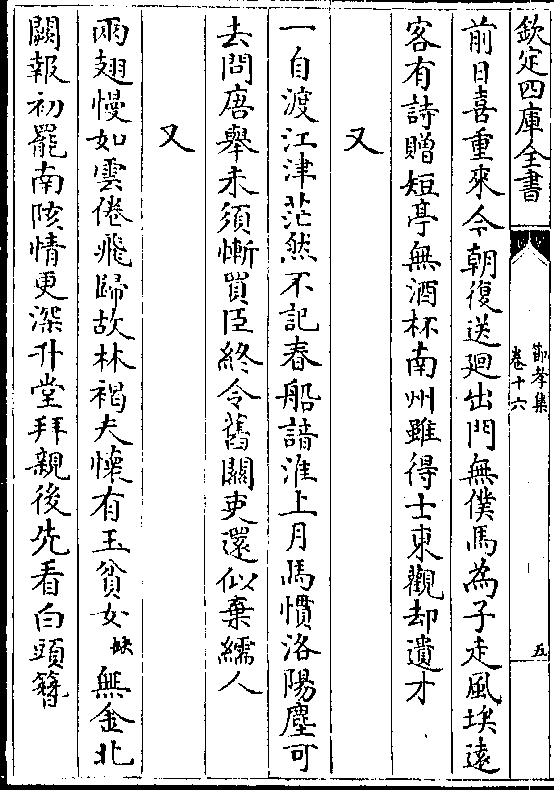 欽定四庫全書
節孝集
卷十六
五
前日喜重來今朝復送廻出門無僕馬為子走風埃遠
客有詩贈短亭無酒杯南州雖得士東觀却遺才
又
一自渡江津茫然不記春船諳淮上月馬慣洛陽塵可
去問唐舉未須慚買臣終令舊關吏還似棄繻人
又
兩翅慢如雲倦飛歸故林褐夫懐有玉貧女缺無金北
闕報初罷南陔情更深升堂拜親後先看白頭簮